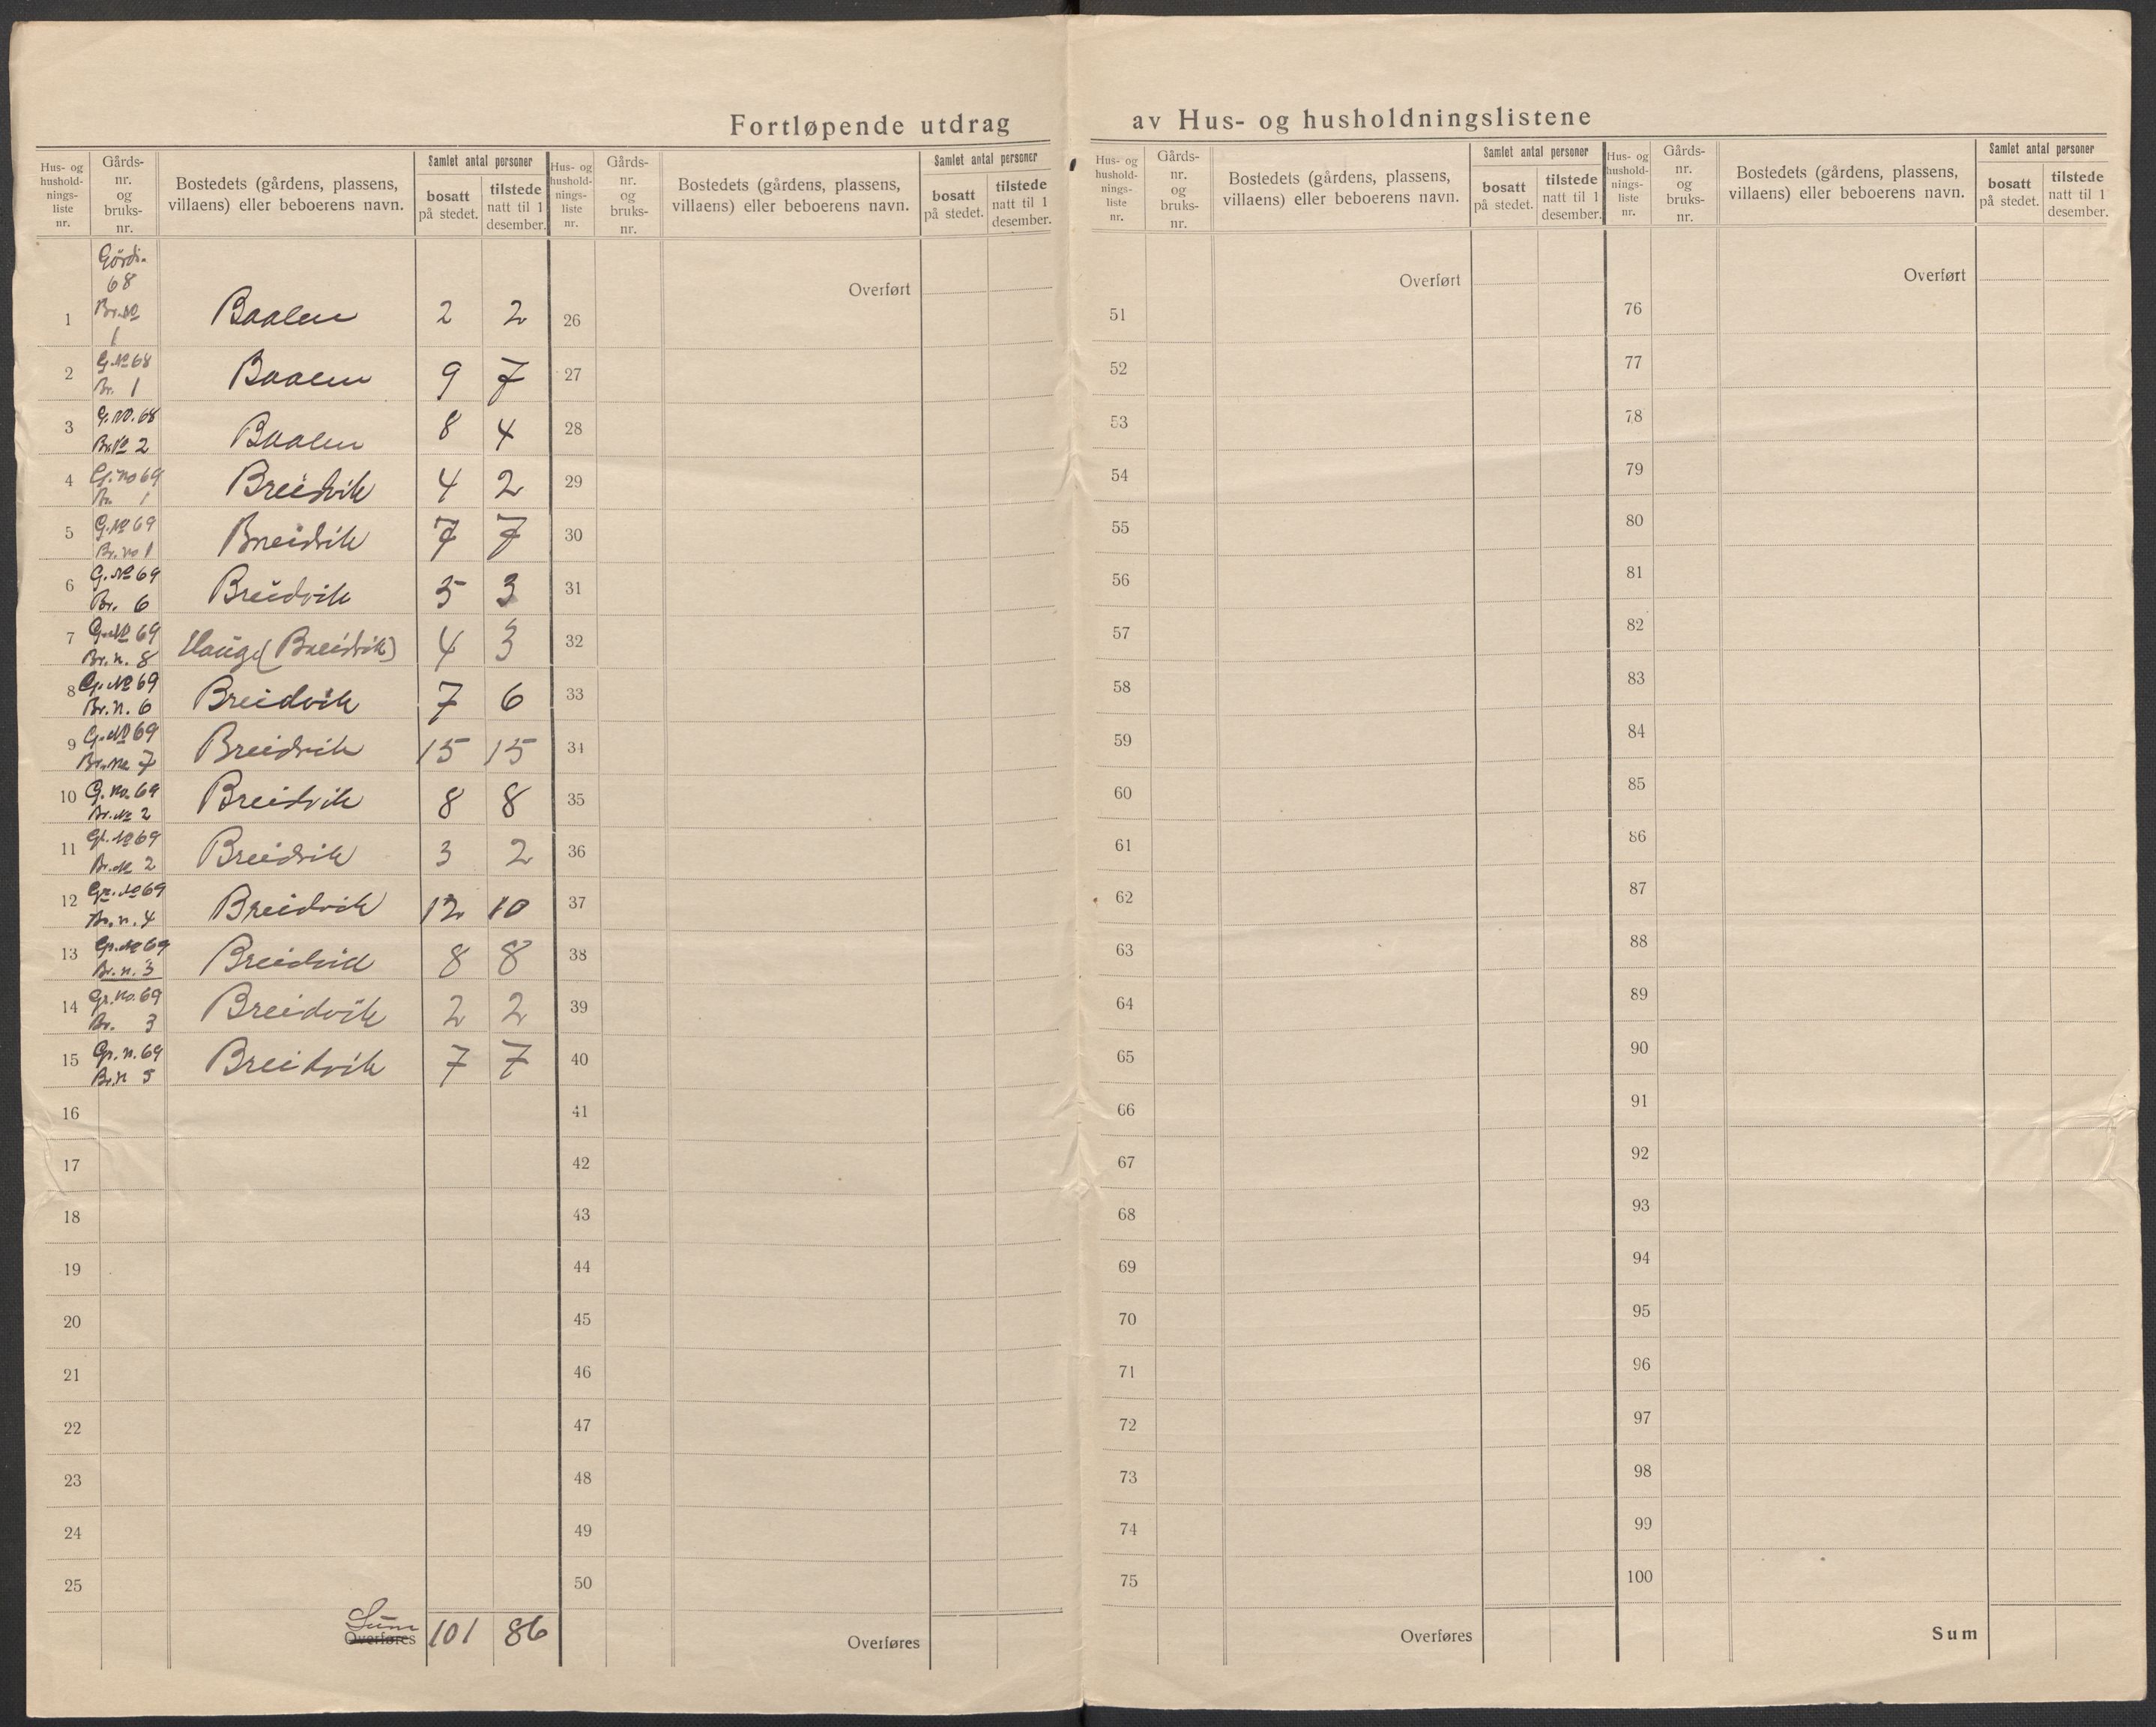 Fortløpende utdrag av Hus- og husholdningslistene
Hus- og hushold-nings-liste nr. | Gårds-nr. og bruks-nr. | Bostedets (gårdens, plassens, villaens) eller beboerens navn. | Samlet antal personer | bosatt på stedet. | tilstede natt til 1 desember.
Hus- og hushold-nings-liste nr. | Gårds-nr. og bruks-nr. | Bostedets (gårdens, plassens, villaens) eller beboerens navn. | Samlet antal personer | bosatt på stedet. | tilstede natt til 1 desember.
Hus- og hushold-nings-liste nr. | Gårds-nr. og bruks-nr. | Bostedets (gårdens, plassens, villaens) eller beboerens navn. | Samlet antal personer | bosatt på stedet. | tilstede natt til 1 desember.
Hus- og hushold-nings-liste nr. | Gårds-nr. og bruks-nr. | Bostedets (gårdens, plassens, villaens) eller beboerens navn. | Samlet antal personer | bosatt på stedet. | tilstede natt til 1 desember.
1 68 Br. No 1 Baalen 2 2
2 G. No 68 Br. 1 Baalen 9 7
3 G. No. 68 Br. No 2 Baalen 8 4
4 G. No 69 Br. 1 Breidvik 4 2
5 G. No 69 Br. no 1 Breidvik 7 7
6 G. No 69 Br. 6 Breidvik 5 3
7 G. No 69 Br. n. 8 Haug (Breidvik) 4 3
8 G. No 69 Br. n. 6 Breidvik 7 6
9 G. No 69 Br. no 7 Breidvik 15 15
10 G. No. 69 Br. No 2 Breidvik 8 8
11 G. No 69 Br. No 2 Breidvik 3 2
12 Gr. No 69 Br. n. 4 Breidvik 12 10
13 Gr. No 69 Br. n. 3 Breidvik 8 8
14 Gr. No. 69 Br. 3 Breidvik 2 2
15 Gr. n. 69 Br. n 5 Breidvik 7 7
16
17
18
19
20
21
22
23
24
25
Sum
Overføres 101 86
Overført
26
27
28
29
30
31
32
33
34
35
36
37
38
39
40
41
42
43
44
45
46
47
48
49
50
Overføres
Overført
51
52
53
54
55
56
57
58
59
60
61
62
63
64
65
66
67
68
69
70
71
72
73
74
75
Overføres
Overført
76
77
78
79
80
81
82
83
84
85
86
87
88
89
90
91
92
93
94
95
96
97
98
99
100
Sum